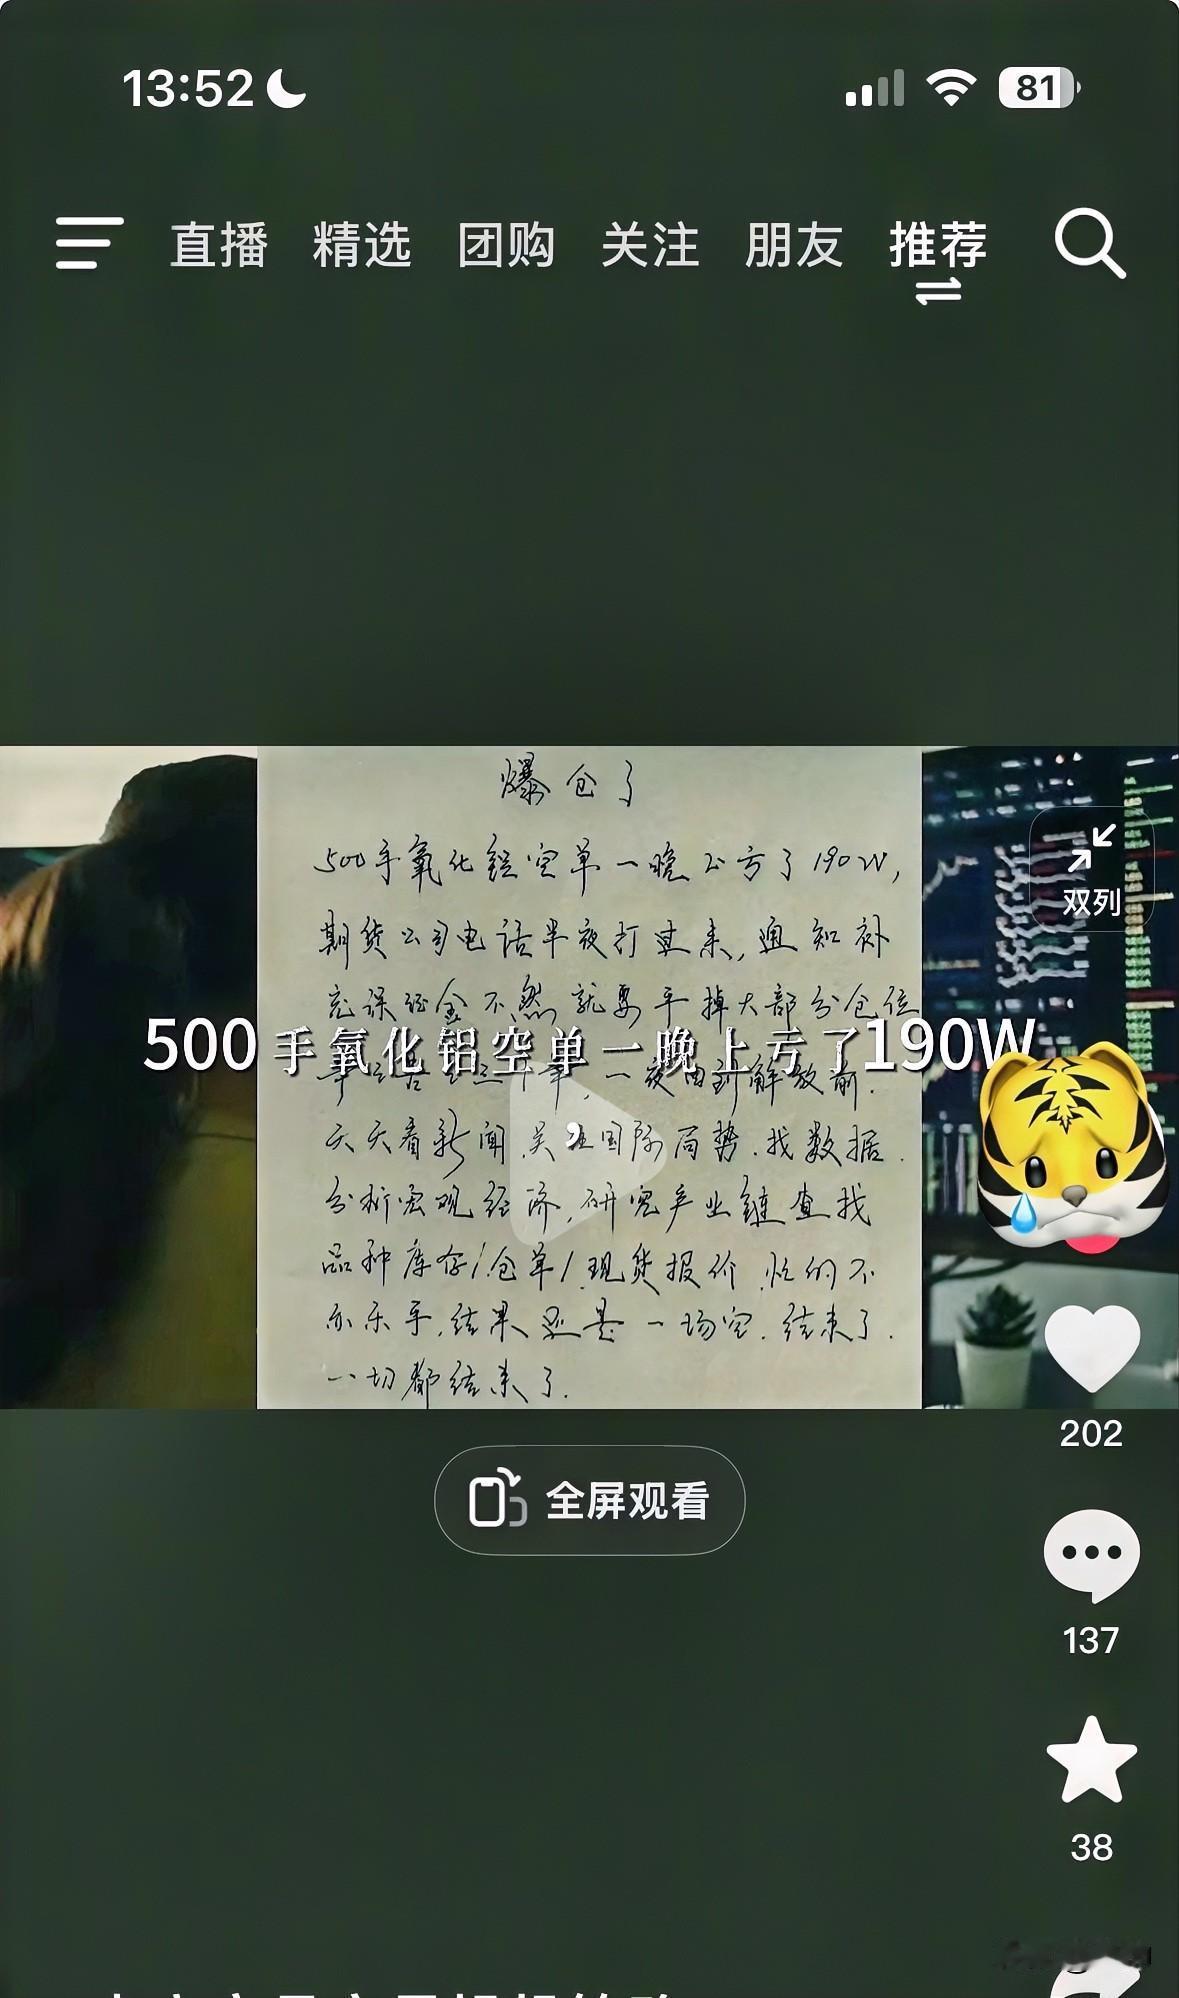 13:52
81
直播 精选 团购 关注 朋友 推荐
爆仓了
500手氧化铝空单一晚上亏了190W,
期货公司电话半夜打过来,通知补
充保证金不然就要平掉大部分仓位
双列
500手氧化铝空单一晚上亏了190W
一夜回到解放前.
天天看新闻.关注国际局势.找数据.
分析宏观经济,研究产业链查找
品种库存/仓单/现货报价.忙的不
亦乐乎.结果还是一场空.结束了.
一切都结束了.
202
全屏观看
137
38